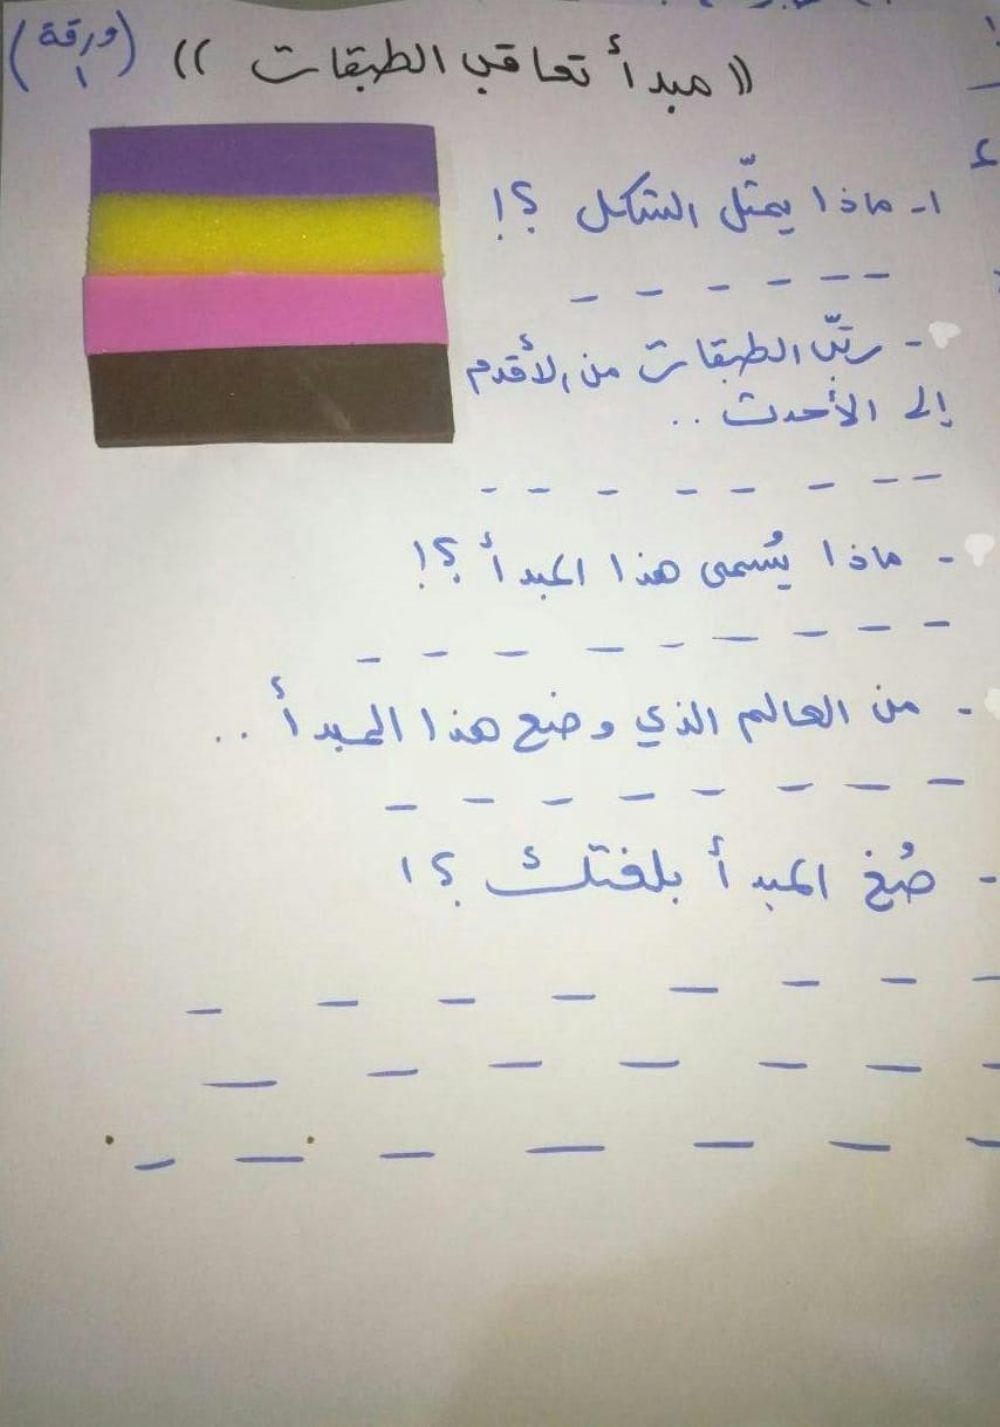 (( مبدأ تعاقب الطبقات )) (ورقة ١)
١- ماذا يمثّل الشكل ؟!
- رتّب الطبقات من الأقدم
إلى الأحدث ..
- ماذا يُسمى هذا المبدأ ؟!
- من العالم الذي وضع هذا المبدأ ..
- صُغ المبدأ بلغتك ؟!